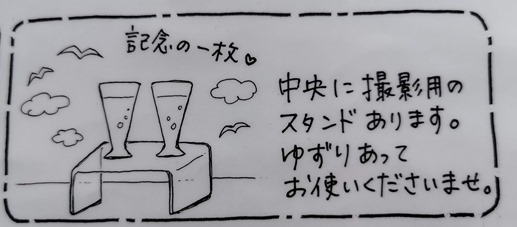 記念の一枚♥
中央に撮影用の
スタンドあります。
ゆずりあって
お使いくださいませ。